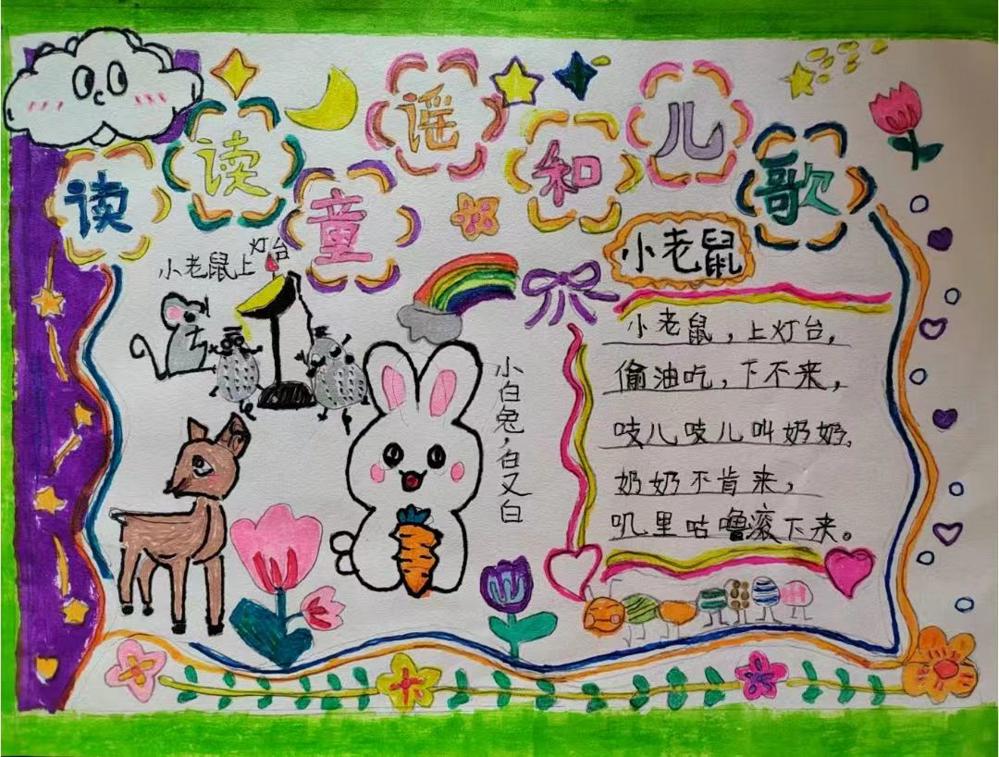 读读童谣和儿歌
小老鼠上灯台
小老鼠
小老鼠，上灯台，
偷油吃，下不来，
吱儿吱儿叫奶奶，
奶奶不肯来，
叽里咕噜滚下来。
小白兔，白又白